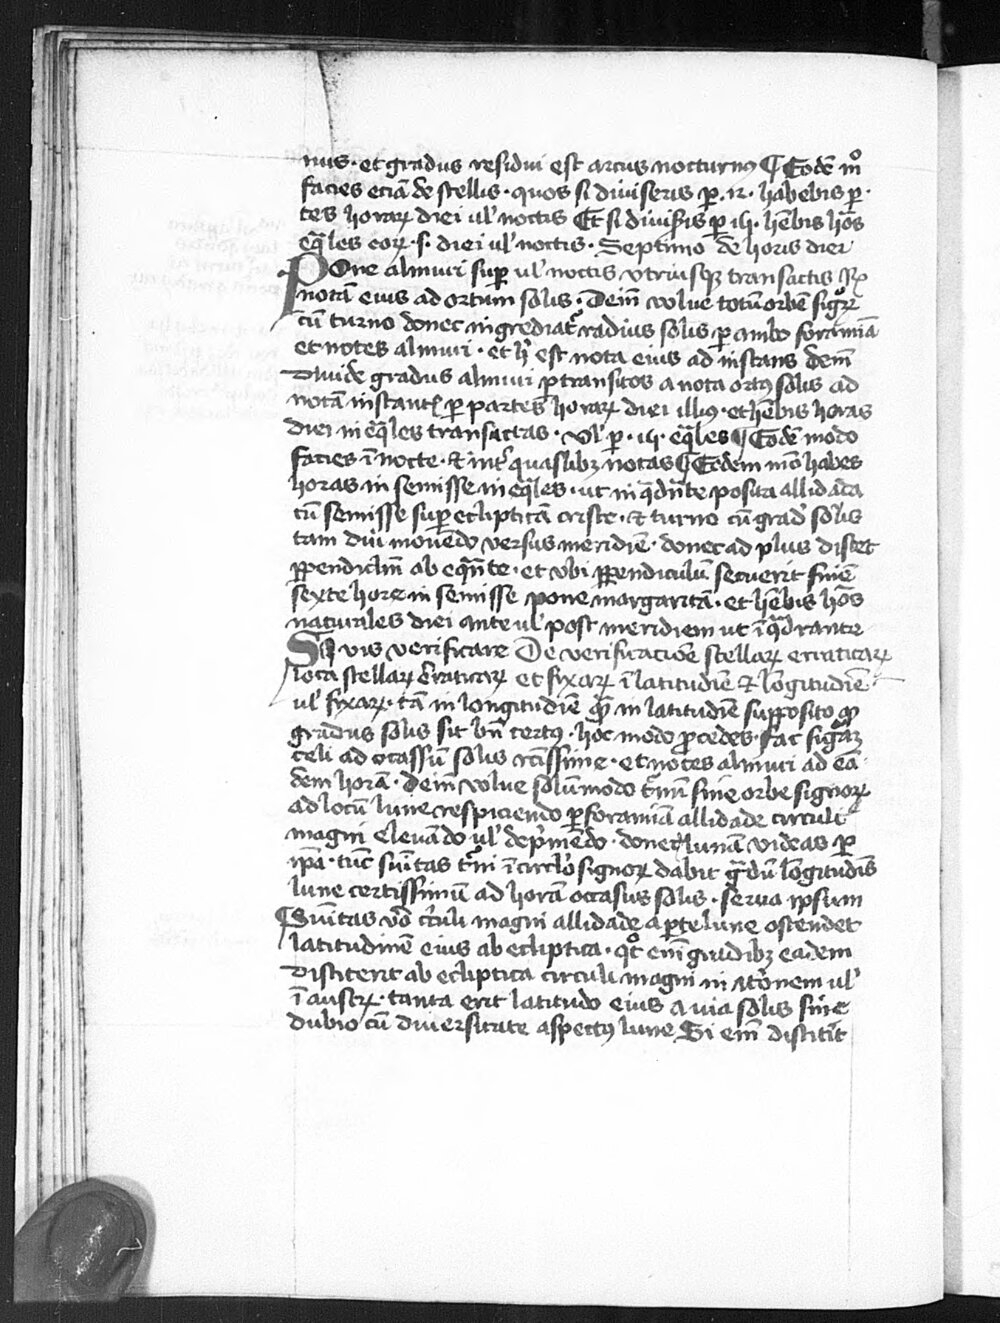 nus · et gradus residui est arcus nocturnꝰ ¶ Eodē mͦ
facies eciā de stellis · quos si diuiseris ꝑ · 12 · habebis ꝑ·
tes horaꝝ diei ul' noctis Et si diuiseris ꝑ 15 · hēbis hōs
eq̄les eoꝝ · s · diei ul' noctis · Septimo de horis diei
POne almuri suꝑ ul' noctis vtriusqꝫ transactis
notā eius ad ortum solis · Dein̄ volue totū orbē signoꝝ
cū turno donec ingrediat᷑ radius solis ꝑ ambo foramīa
et notes almuri · et h' est nota eius ad instans dein̄
Diuide gradus almuri ꝑtransitos a nota ortꝰ solis ad
notā instantꝭ ꝑ partes horaꝝ diei illiꝰ · et hēbis horas
diei ineq̄les transactas · Ul' ꝑ · 15 · eq̄les ¶ Eodē modo
facies ī nocte · et int' quaslibꝫ notas ¶ Eodem mō habes
horas in semisse ineq̄les · ut in q̄drāte posita allidada
cū semisse suꝑ eclipticā criste · et turno cū gradꝰ solis
tam diu mouēdo versus meridiē · donec ad plus distet
ꝑpendiclm̄ ab eq̄nte · et vbi ꝑpendiculū secuerit finē
sexte hore in semisse pone margaritā · et hēbis hōs
naturales diei ante ul' post meridiem ut ī q̄drante
SI vis verificare De verificatiōe stellaꝝ erraticaꝝ
loca stellaꝝ erraticaꝝ et fixaꝝ ī latitudīe et lōgitudīe
ul' fixaꝝ · tā in longitudīe qͣm in latitudīe supposito ꝙ
gradus solis sit bn̄ certꝰ · hoc modo ꝓcedes · fac figurā
celi ad occassū solis rectissime · et notes almuri ad eā·
dem horā · Dein̄ volue solūmodo t'nū sine orbe signoꝝ
ad locū lune respiciendo ꝑ foramīa allidade circuli
magni eleuādo ul' dep'mēdo · donec lunā videas ꝑ
ip̄a · tūc sūitas t'ni ī circl'o signoꝝ dabit g̾dū lōgitudīs
lune certissimū ad horā occasus solis · serua ipsum
¶ Sūitas v̄o c'culi magni allidade a ꝑte lune ostendet
latitudinē eius ab ecliptica · qͦt em̄ gradibꝫ eadem
Distiterit ab ecliptica circuli magni in ul'
ī austꝝ · tanta erit latitudo eius a via solis sine
dubio cū diuersitate aspectꝰ lune Si em̄ distit'it